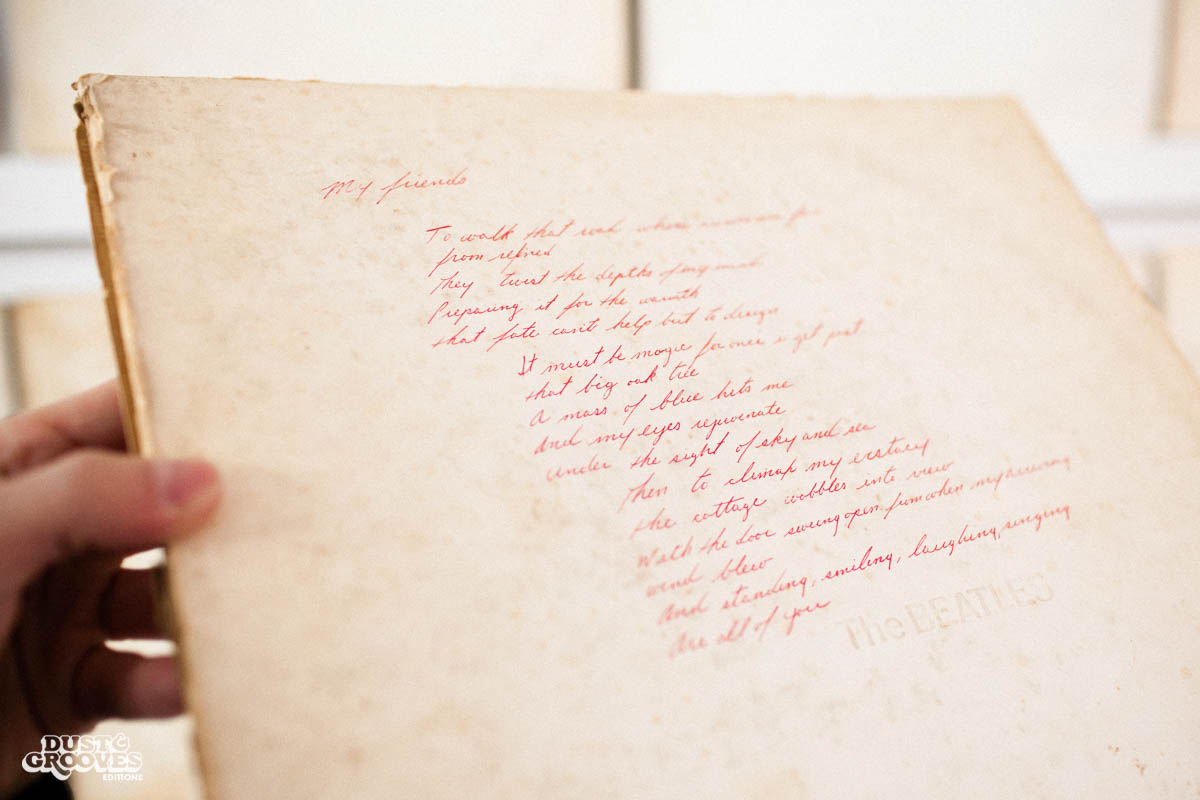 My friends
To walk that road where
from refined
They twist the depths of my mind
Preparing it for the warmth
that fate can't help but to design
It must be magic for once i get past
that big oak tree
A mass of blue hits me
And my eyes rejuvenate
under the sight of sky and sea
Then to climax my ecstacy
the cottage wobbles into view
With the door swung open from when my
wind blew
And standing, smiling, laughing, singing
Are all of you
The BEATLES
DUST &
GROOVES
EDITIONS